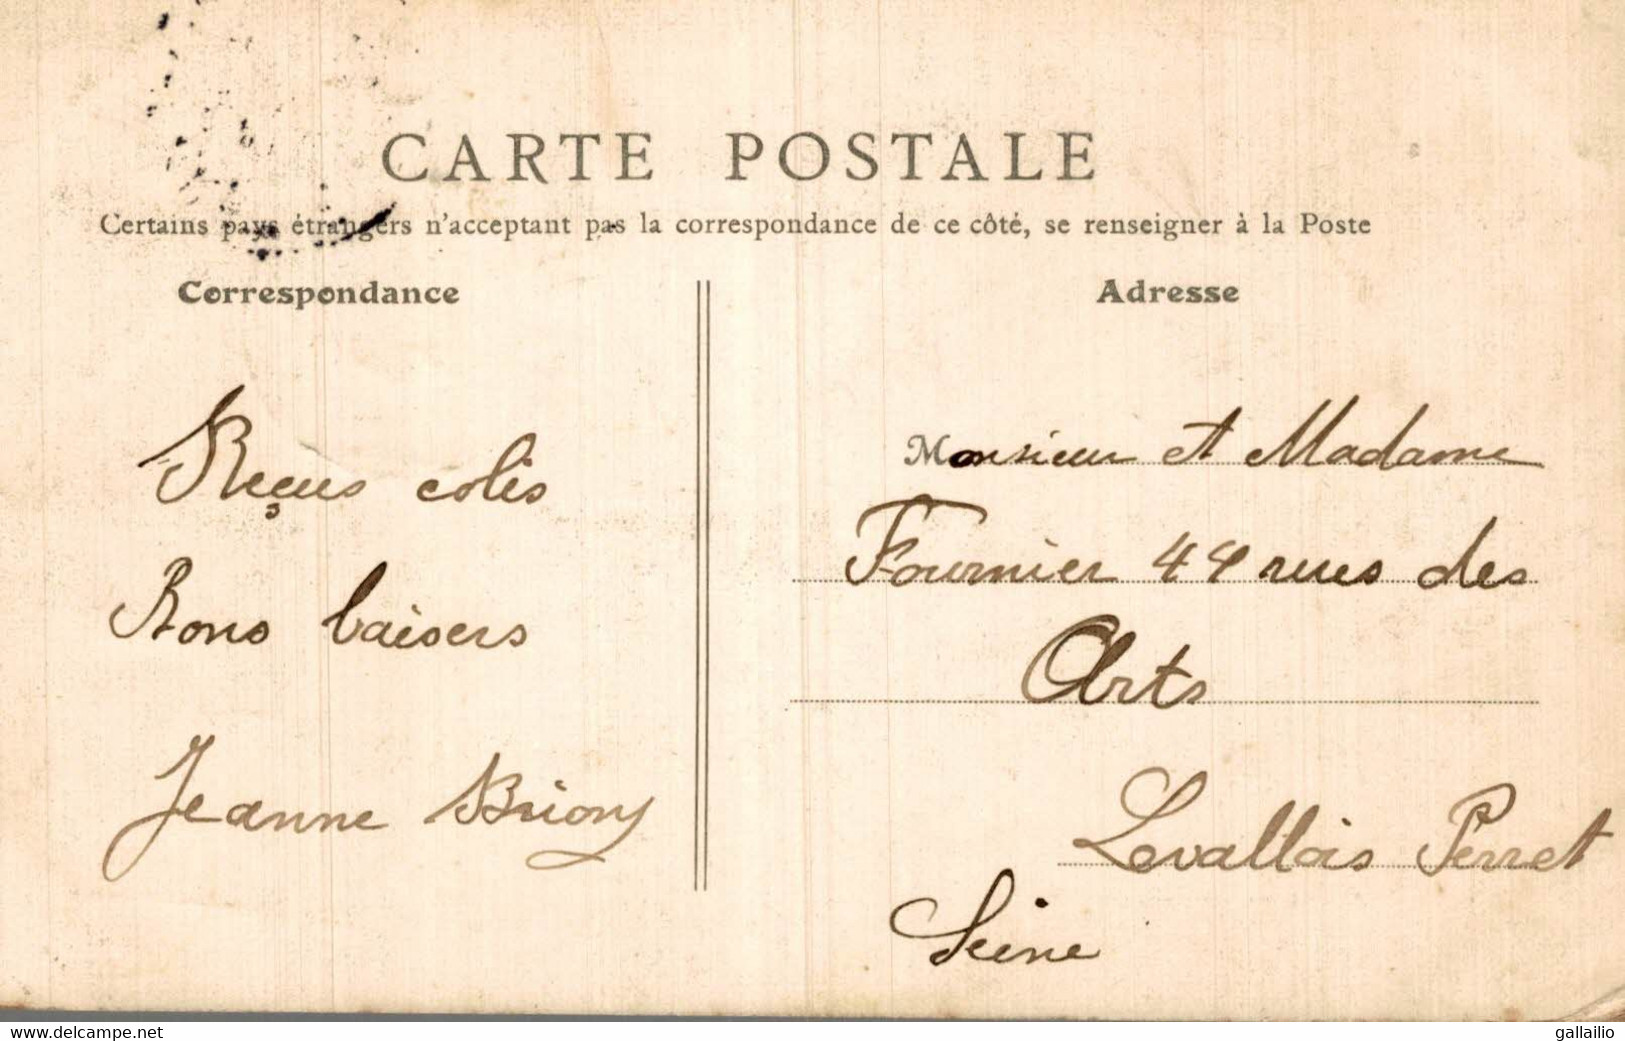 CARTE POSTALE
Certains pays étrangers n'acceptant pas la correspondance de ce côté, se renseigner à la Poste
Correspondance
Reçus colis
Bons baisers
Jeanne Briony
Adresse
Monsieur et Madame
Fournier 44 rues des
Arts
Levallois Perret
Seine
www.delcampe.net
gallailio